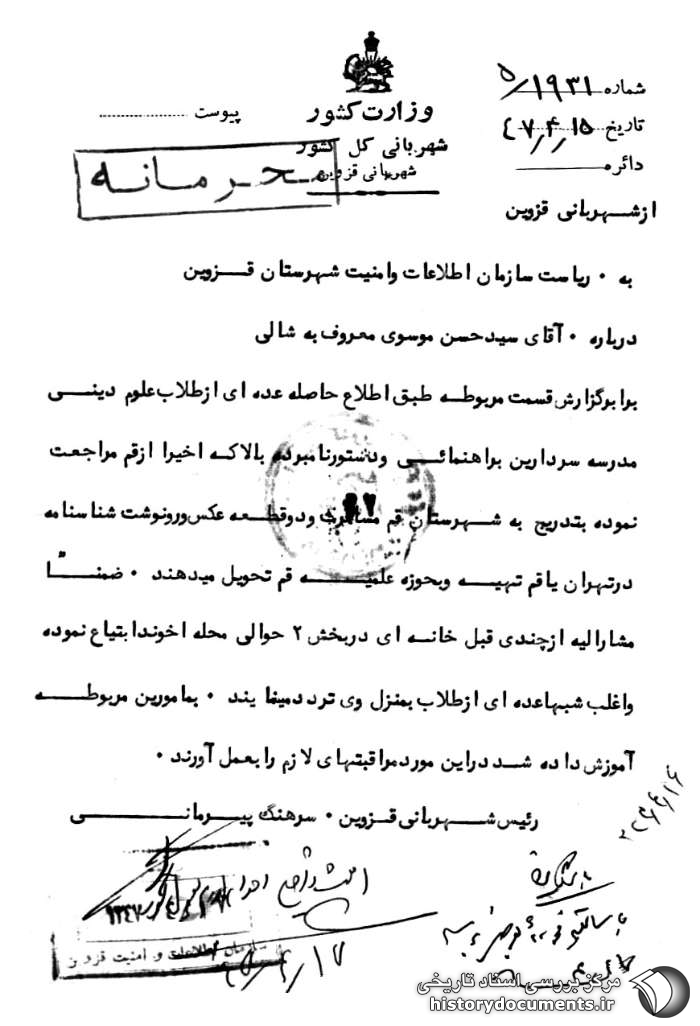 شماره ۵/۱۹۳۱
تاریخ ۴۷/۴/۱۵
دائره
وزارت کشور
شهربانی کل کشور
شهربانی قزوین
پیوست
محرمانه
از شهربانی قزوین
به ۰ ریاست سازمان اطلاعات وامنیت شهرستان قزوین
درباره ۰ آقای سیدحسن موسوی معروف به شالی
برابرگزارش قسمت مربوطه طبق اطلاع حاصله عده ای ازطلاب علوم دینی
مدرسه سردارین براهنمائی ودستورنامبرده بالاکه اخیرا ازقم مراجعت
نموده بتدریج به شهرستان قم مسافرت ودوقطعه عکس ورونوشت شناسنامه
درتهران یاقم تهیه وبحوزه علمیه قم تحویل میدهند ۰ ضمناً
مشارالیه ازچندی قبل خانه ای دربخش ۲ حوالی محله اخوندابتیاع نموده
واغلب شبهاعده ای ازطلاب بمنزل وی ترددمینمایند ۰ بمامورین مربوطه
آموزش داده شد دراین موردمراقبتهای لازم رابعمل آورند ۰
رئیس شهربانی قزوین ۰ سرهنگ پیرمانی
۱۳۴۷
سازمان اطلاعات و امنیت قزوین
۴۷/۴/۱۷
مرکز بررسی اسناد تاریخی
historydocuments.ir